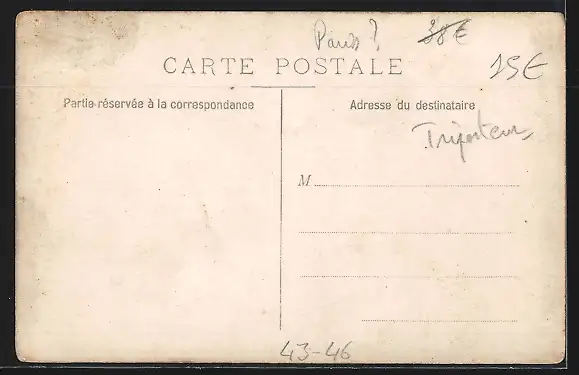 Paris ? 38€
CARTE POSTALE 15€
Partie réservée à la correspondance
Adresse du destinataire
Triporteur
M
43-46